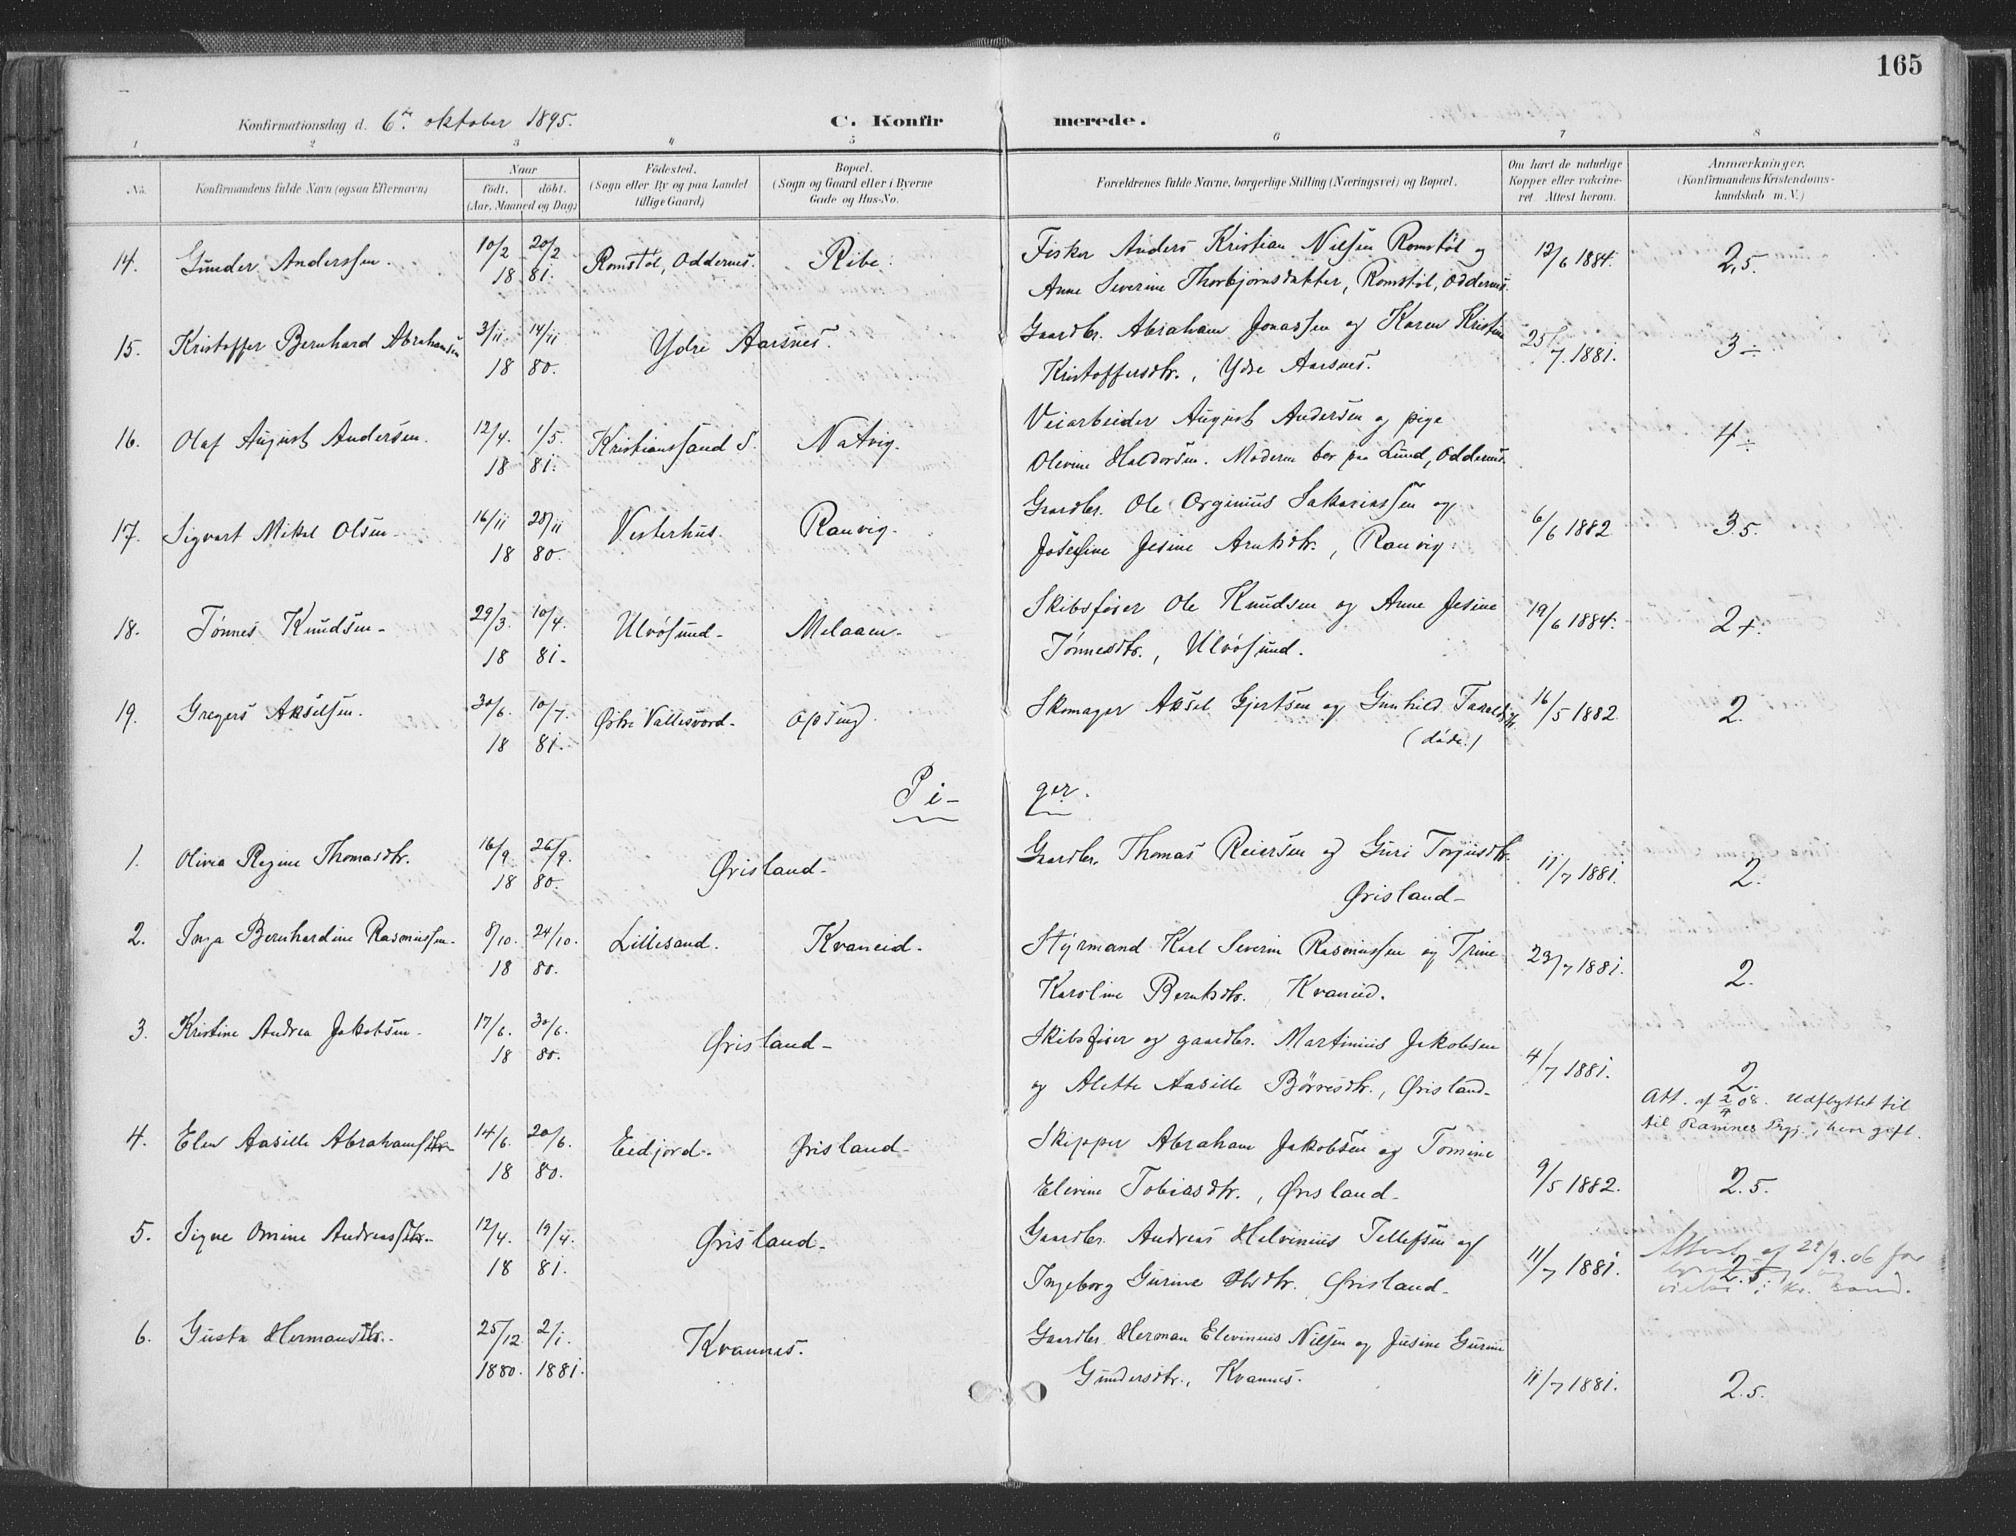 165
Konfirmationsdag d. 6te oktober 1895. C. Konfirmerede.
1 2 3 4 5 6 7 8
No. Konfirmandens fulde Navn (ogsaa Efternavn) Naar født. døbt. (Aar, Maaned og Dag) Fødested. (Sogn eller By og paa Landet tillige Gaard) Bopæl. (Sogn og Gaard eller i Byerne Gade og Hus-No. Forældrenes fulde Navne, borgerlige Stilling (Næringsvei) og Bopæl. Om havt de naturlige Kopper eller vakcineret. Attest herom. Anmærkninger. (Konfirmandens Kristendomskundskab m. V.)
14. Gunder Anderssen. 10/2 20/2 18 81. Romstøl, Oddernes. Ribe. Fisker Anders Kristian Nilsen Romstøl og 12/6 1884. 2,5.
Anne Severine Thorbjørnsdatter, Romstøl, Oddernes.
15. Kristoffer Bernhard Abrahamsen 3/11. 14/11 18 80. Ydre Aarsnes. Gaardbr. Abraham Jonassen og Karen Kristine 25/7. 1881. 3÷
Kristoffersdtr., Ydre Aarsnes.
16. Olaf August Andersen. 12/4. 1/5. 18 81. Kristianssand S. Natvig. Veiarbeider August Andersen og pige 4÷
Olevine Haldorsen. Moderen bor paa Lund, Oddernes.
17. Sigvart Mikal Olsen. 16/11 28/11 18 80. Vesterhus. Ranvig. Gaardbr. Ole Orginius Sakariassen og 6/6 1882 3.5.
Josefine Jesine Arntsdtr., Ranvig.
18. Tønnes Knudsen. 29/3. 10/4. 18 81. Ulvøsund. Melaaen. Skibsfører Ole Knudsen og Anne Jesine 19/6 1884. 2+.
Tønnesdtr., Ulvøsund.
19. Gregers Akselsen. 30/6. 10/7. 18 81. Østre Vallesverd. Opsund. Skomager Aksel Gjertsen og Gunhild Taraldsdtr. 16/5 1882 2.
(døde.)
Pi- ger.
1. Olivia Regine Thomasdtr. 16/9. 26/9. 18 80. Ørisland. Gaardbr. Thomas Reiersen og Guri Torjusdtr. 11/7 1881. 2.
Ørisland.
2. Inga Bernhardine Rasmussen. 8/10. 24/10. 18 80. Lillesand. Kvaneid. Styrmand Karl Severin Rasmussen og Trine 23/7 1881. 2.
Karoline Berntsdtr. Kvaneid.
3. Kristine Andrea Jakobsen. 17/6. 30/6. 18 80. Ørisland. Skibsfører og gaardbr. Martinius Jakobsen 4/7 1881. 2.
og Alette Aasille Børresdtr., Ørisland. Att. af 2/4 08. Udflyttet til
til Ramnes Pgj., hvor gift.
4. Elen Aasille Abrahamsdtr. 14/6. 20/6. 18 80. Eidjord. Ørisland. Skipper Abraham Jakobsen og Tomine 9/5 1882. 2.5.
Elevine Tobiasdtr., Ørisland.
5. Signe Omine Andreasdtr. 12/4. 19/4. 18 81. Ørisland. Gaardbr. Andreas Helvinius Tellefsen og 11/7 1881. 2.5 Attest af 29/9.06 for
Ingeborg Gurine Olsdtr. Ørisland. i Kr. sand.
6. Gusta Hermansdtr. 25/12. 2/1. 1880. 1881. Kvannes. Gaardbr. Herman Elevinius Nilsen og Jusine Gurine 11/7 1881. 2.5.
Gundersdtr., Kvannes.